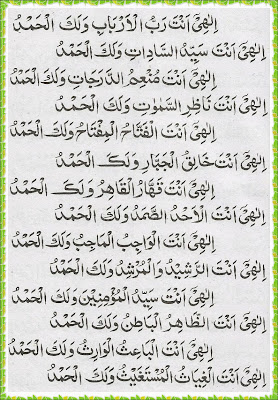 اِلٰهِىْ اَنْتَ رَبُّ الْاَرْبَابِ وَلَكَ الْحَمْدُ
اِلٰهِىْ اَنْتَ سَيِّدُ السَّادَاتِ وَلَكَ الْحَمْدُ
اِلٰهِىْ اَنْتَ مُنْعِمُ الدَّرَجَاتِ وَلَكَ الْحَمْدُ
اِلٰهِىْ اَنْتَ نَاظِرُ السَّمٰوٰتِ وَلَكَ الْحَمْدُ
اِلٰهِىْ اَنْتَ الْفَتَّاحُ الْمِفْتَاحُ وَلَكَ الْحَمْدُ
اِلٰهِىْ اَنْتَ خَالِقُ الْجَبَّارِ وَلَكَ الْحَمْدُ
اِلٰهِىْ اَنْتَ قَهَّارُ الْقَاهِرُ وَلَكَ الْحَمْدُ
اِلٰهِىْ اَنْتَ الْاَحَدُ الصَّمَدُ وَلَكَ الْحَمْدُ
اِلٰهِىْ اَنْتَ الْوَاجِبُ الْمَاجِبُ وَلَكَ الْحَمْدُ
اِلٰهِىْ اَنْتَ الرَّشِيْدُ وَالْمُرْشِدُ وَلَكَ الْحَمْدُ
اِلٰهِىْ اَنْتَ سَيِّدُ الْمُؤْمِنِيْنَ وَلَكَ الْحَمْدُ
اِلٰهِىْ اَنْتَ الظَّاهِرُ الْبَاطِنُ وَلَكَ الْحَمْدُ
اِلٰهِىْ اَنْتَ الْبَاعِثُ الْوَارِثُ وَلَكَ الْحَمْدُ
اِلٰهِىْ اَنْتَ الْغِيَاثُ الْمُسْتَغِيْثُ وَلَكَ الْحَمْدُ